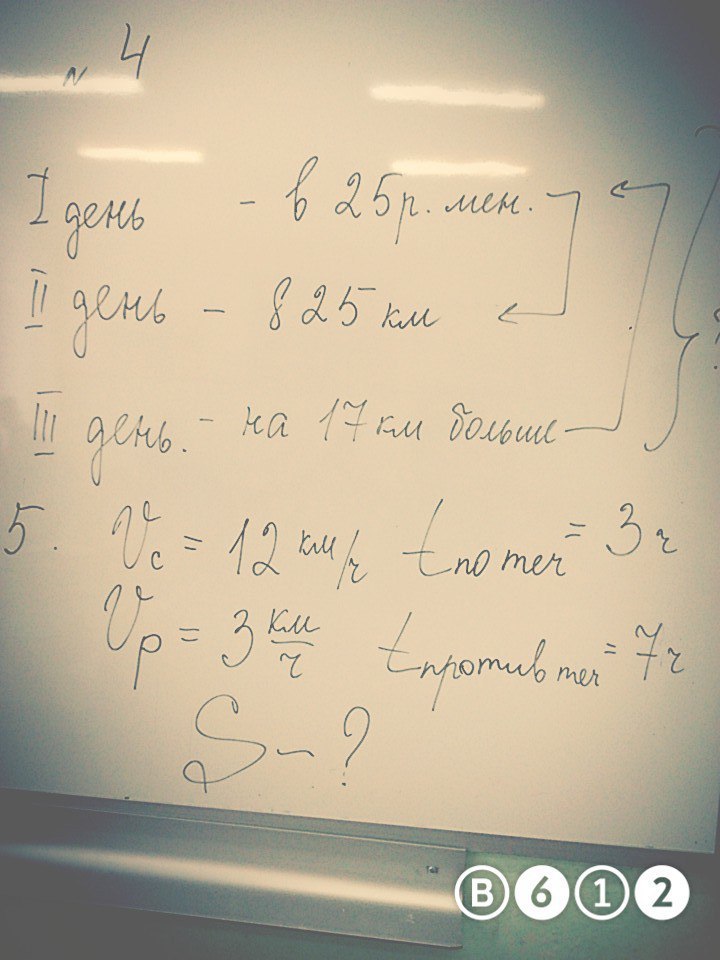 № 4
I день - в 25 р. мен.
II день - 825 км
III день. - на 17 км больше
?
5. Vс = 12 км/ч t по теч = 3 ч
Vр = 3 км/ч t против теч = 7 ч
S - ?
B612